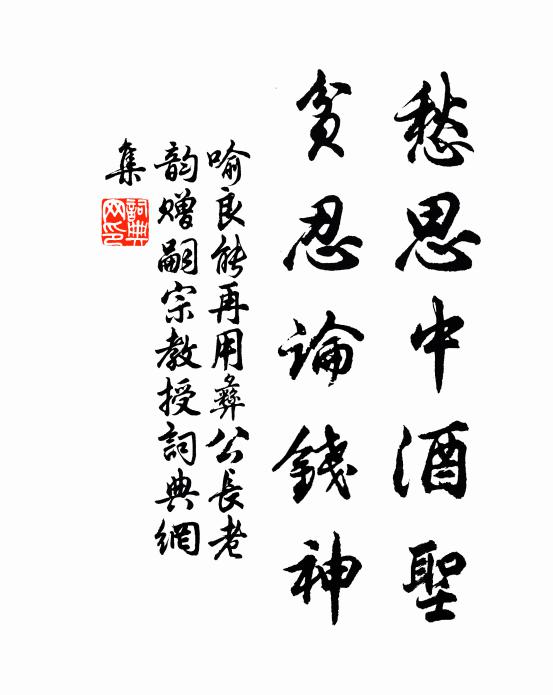 愁思中酒聖
貧忍論錢神
喻良能再用彝公長老
韵贈嗣宗教授詞典網
集
詞典網印